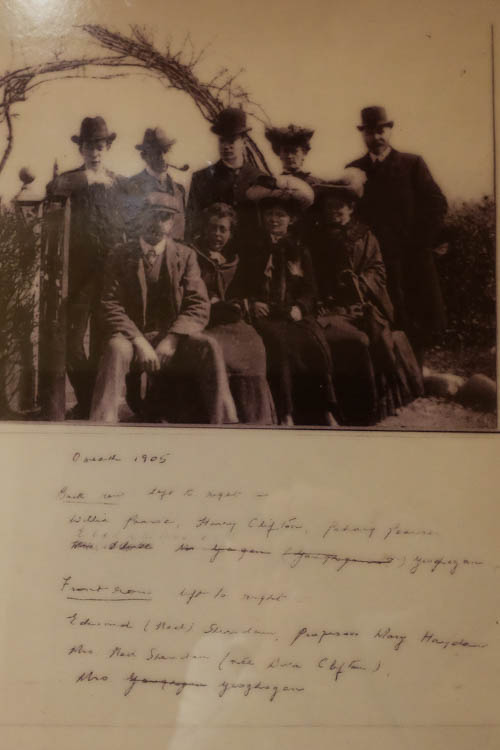 Omeath 1905
Back row left to right -
Willie Pearse, Henry Clifton, Padraig Pearse
Mr Geoghegan
Front row left to right
Edmund (Ned) Sheridan, Professor Mary Hayden
Mrs Ned Sheridan (née Dora Clifton),
Mrs Geoghegan